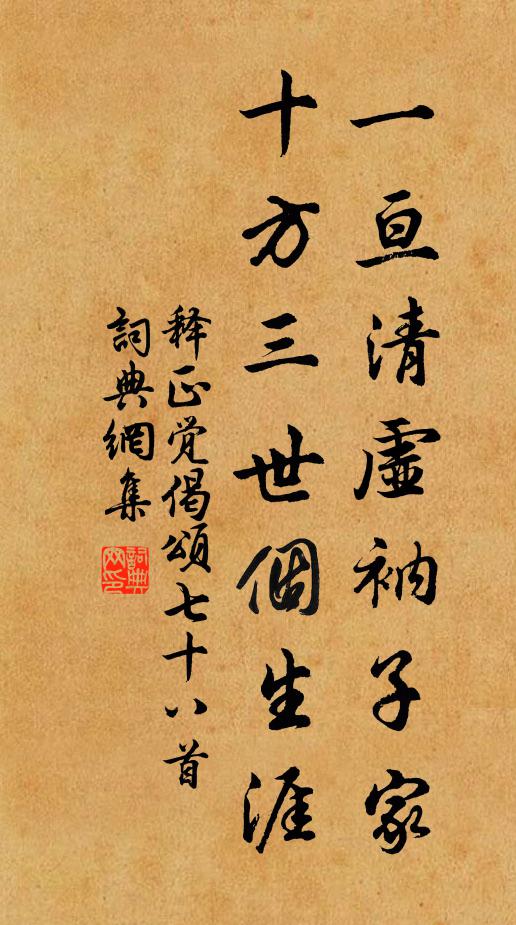 一亘清虛衲子家
十方三世個生涯
释正觉偈頌七十八首
詞典網集
詞典網印